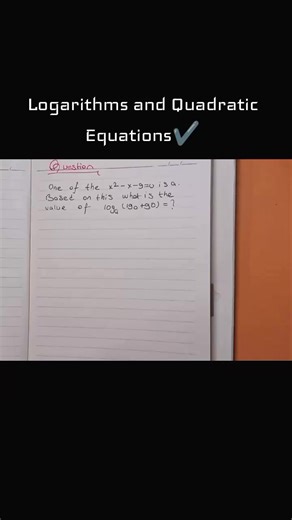 Logarithms and Quadratic
Equations✔
Question
One of the x²-x-9=0 is a.
Based on this what is the
value of logₐ(19a+90)=?